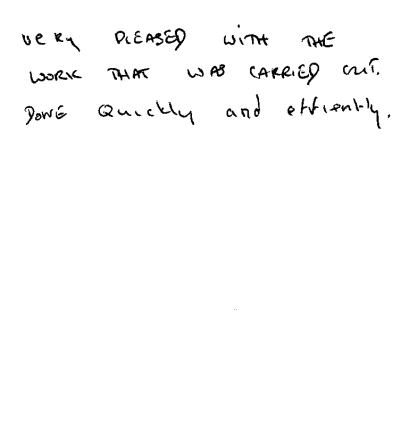 very PLEASED WITH THE
WORK THAT WAS CARRIED OUT.
DONE Quickly and effiently.